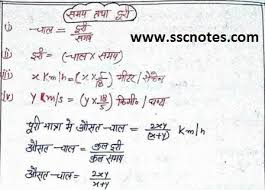 समय तथा दूरी
www.sscnotes.com
(i) चाल = दूरी / समय
(ii) दूरी = (चाल × समय)
(iii) x km/h = (x × 5/18) मीटर / सेकेण्ड
(iv) y km/s = (y × 18/5) किमी० / घण्टा
पूरी यात्रा में औसत चाल = 2xy / (x+y) km/h
औसत चाल = कुल दूरी / कुल समय
औसत चाल = 2xy / x+y